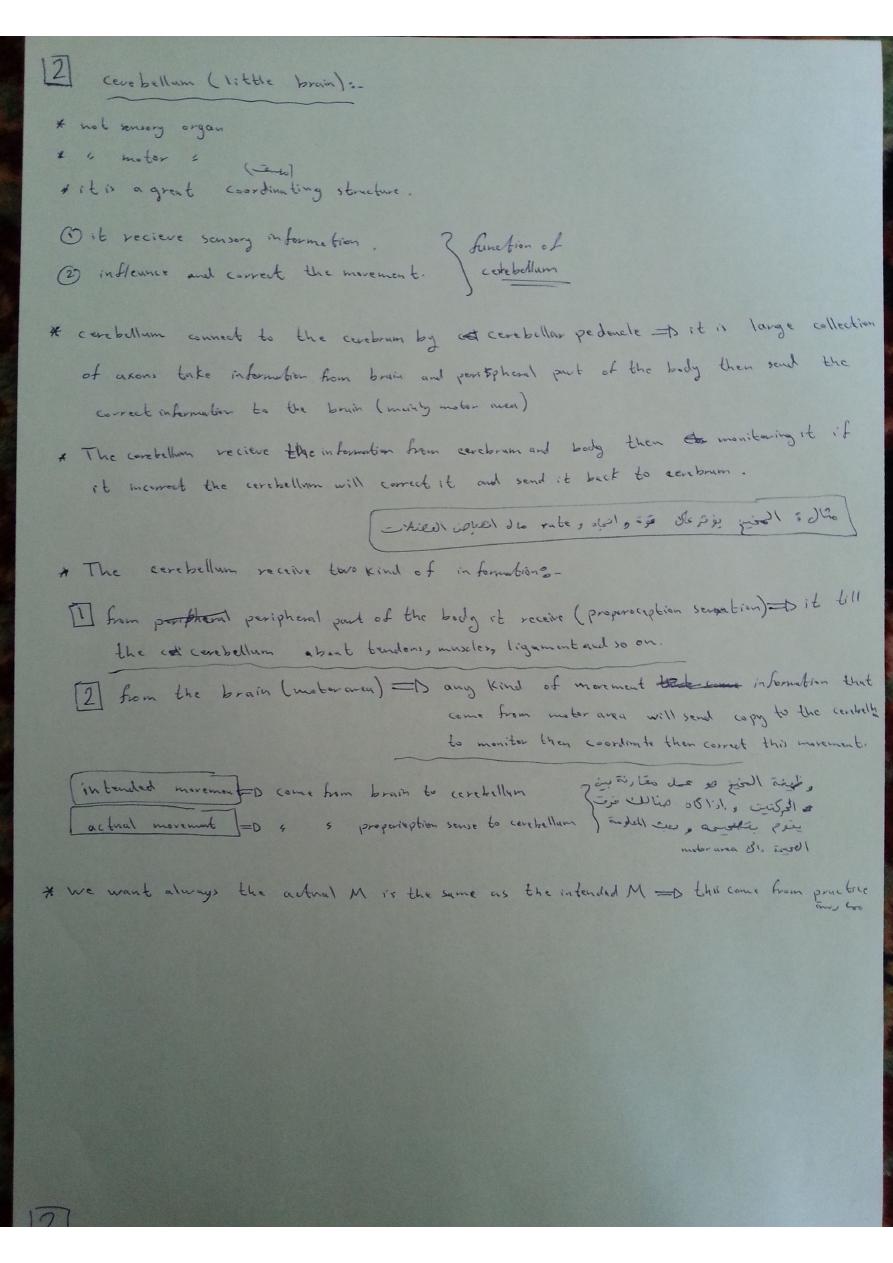 2 cerebellum (little brain):-
* not sensory organ
* " motor "
(منسق)
* it is a great coordinating structure.
① it recieve sensory information.
② infleunce and correct the movement.
function of
cerebellum
* cerebellum connect to the cerebrum by cerebellar peduncle ⇒ it is large collection
of axons take information from brain and peripheral part of the body then send the
correct information to the brain (mainly motor area)
* The cerebellum recieve the information from cerebrum and body then monitoring it if
it incorrect the cerebellum will correct it and send it back to cerebrum.
مثال: المخيخ يؤثر على قوة واتجاه و rate انقباض العضلات
* The cerebellum receive two kind of information:-
1 from peripheral part of the body it receive (properoception sensation) ⇒ it till
the cerebellum about tendons, muscles, ligament and so on.
2 from the brain (motor area) ⇒ any kind of movement information that
come from motor area will send copy to the cerebell
to monitor then coordinate then correct this movement.
intended movement ⇒ come from brain to cerebellum
actual movement ⇒ " " properieption sense to cerebellum
وظيفة المخيخ هو عمل مقارنة بين
الحركتين و إذا كان هنالك فرق
يقوم بتصحيحه و بعث المعلومة
الصحيحة الى motor area
* we want always the actual M is the same as the intended M ⇒ this come from practice
ممارسة
2